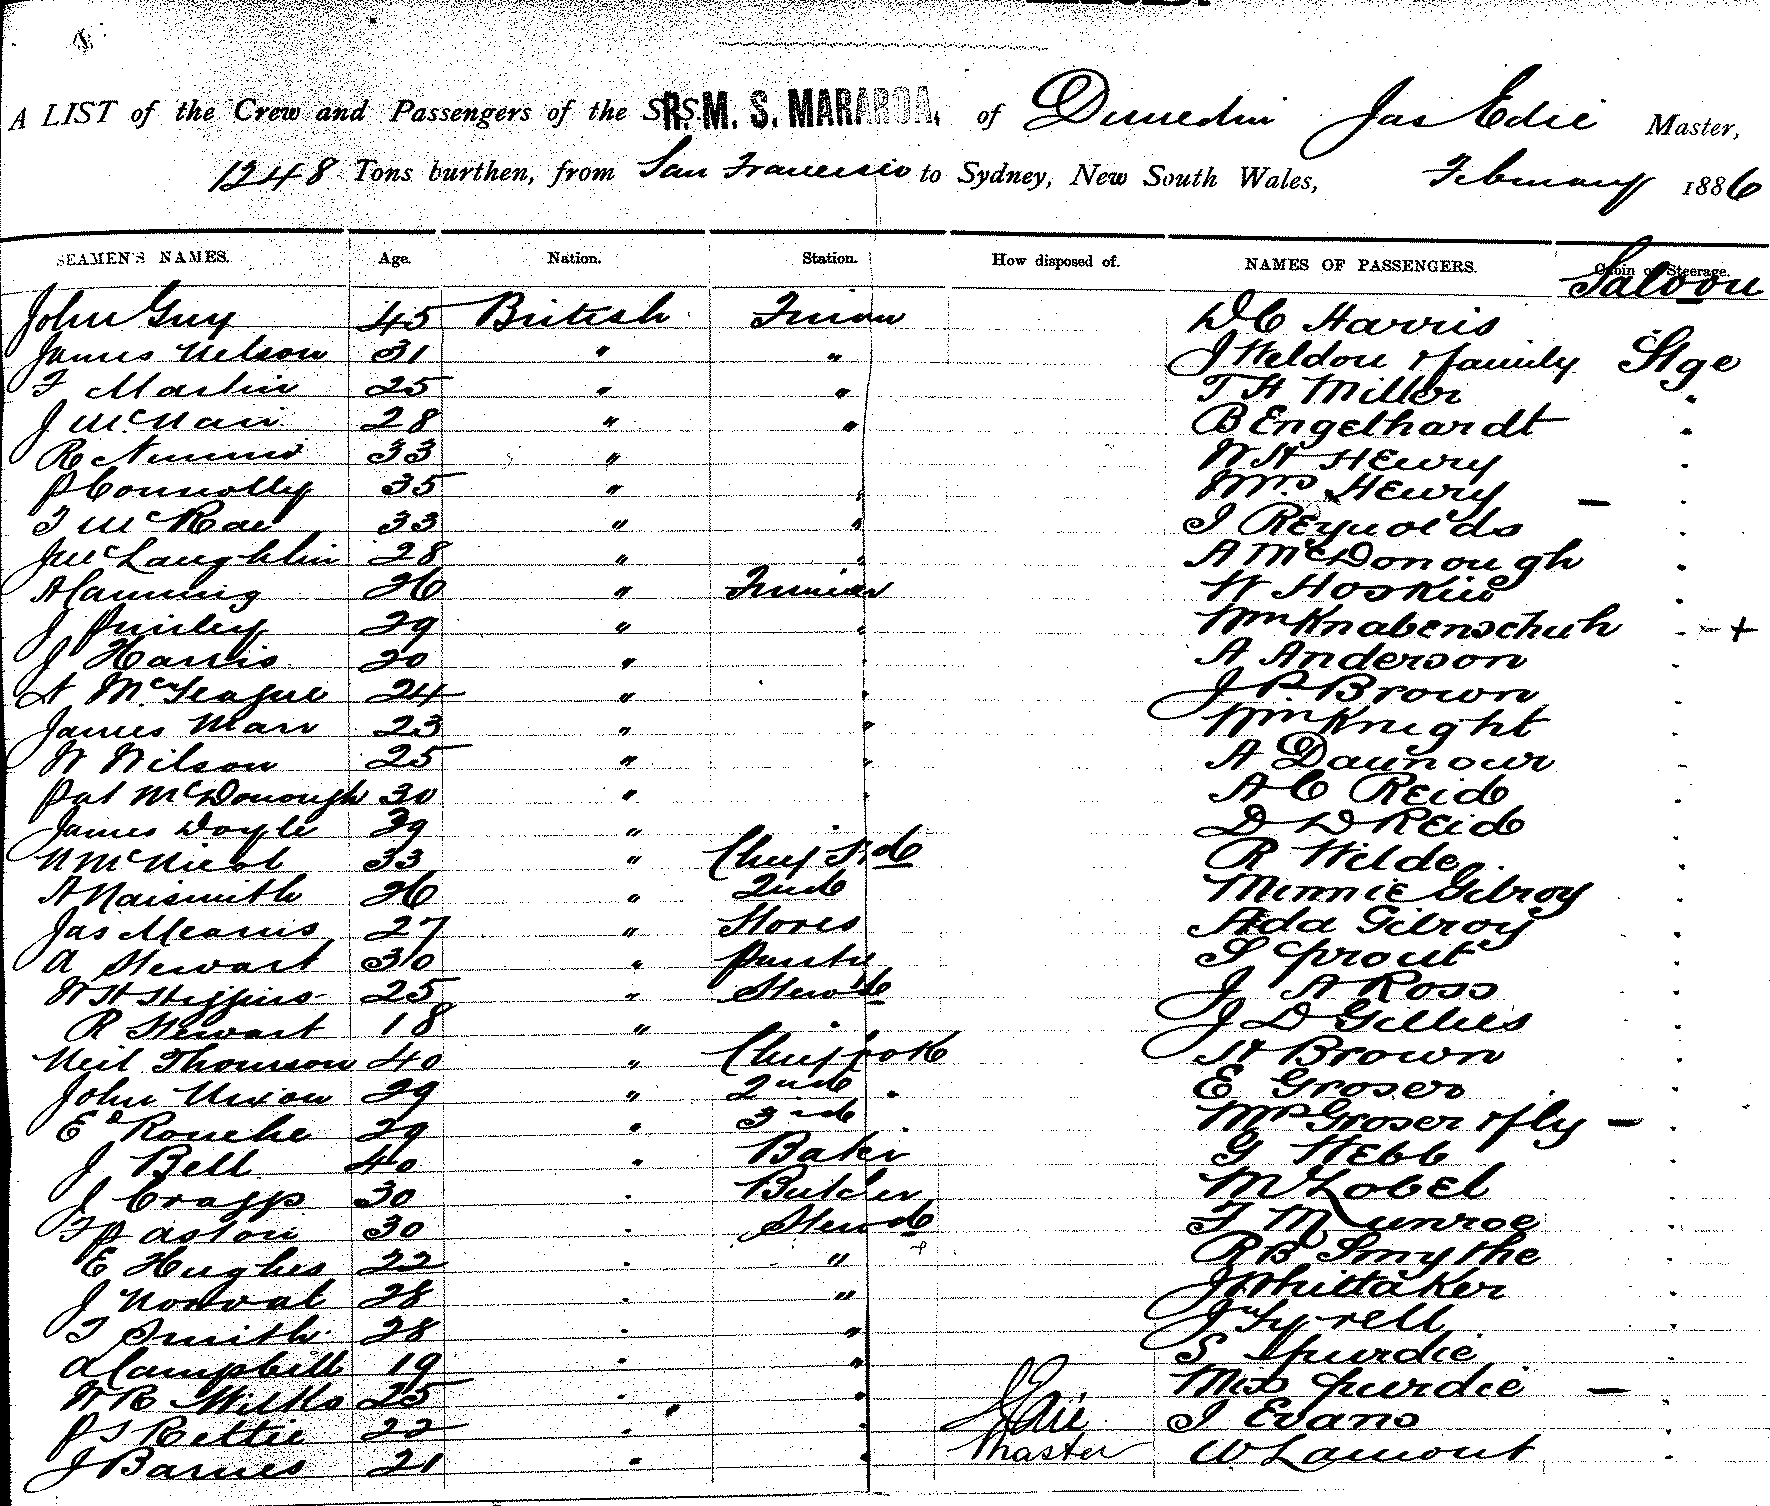 A LIST of the Crew and Passengers of the S.S. R. M. S. MARAROA. of Dunedin Jas Edie Master,
1248 Tons burthen, from San Francisco to Sydney, New South Wales, February 1886
SEAMEN'S NAMES. Age. Nation. Station. How disposed of. NAMES OF PASSENGERS. Cabin or Steerage.
Saloon
John Guy 45 British D C Harris
James Nelson 31 " " J Weldon & family Stge
F Martin 25 " " T H Miller "
J McNair 28 " " B Engelhardt "
R Nimmo 33 " W H Henry "
P Connolly 35 " " Mrs Henry — "
T McRae 33 " " J Reynolds "
J McLaughlin 28 " " A McDonough "
A Canning 26 " W Hoskin "
J Puirley 29 " " Wm Knabenschuh " +
J Harris 20 " " A Anderson "
A McTeague 24 " " J P Brown
James Marr 23 " " Wm Knight "
W Wilson 25 " " A Daunour "
Pat McDonough 30 " " A C Reid "
James Doyle 39 " D D Reid "
N McNicol 33 " Chief Std R Wilde "
A Naismith 26 " 2nd Minnie Gilroy "
Jas Mearns 27 " Stores Ada Gilroy "
A Stewart 30 " Pantry S Sprout "
W H Higgins 25 " Stewd J A Ross "
R Stewart 18 " J D Gillies "
Neil Thomson 40 " Chief Cook H Brown "
John Nixon 29 " 2nd " E Groser "
Ed Rouche 29 " 3rd " Mrs Groser & fly — "
J Bell 40 " Baker G Webb "
J Cragg 30 " Butcher M Lobel "
F P Aston 30 " Stewd T Munroe "
E Hughes 22 " " R B Smythe "
J Norval 28 " " J Whittaker "
T Smith 28 " " J Tyrrell "
A Campbell 19 " " S Spurdie "
W R Wilks 25 " " Miss Spurdie — "
P S Rettie 22 " " J Edie J Evans "
J Barnes 21 " " Master W Lamont "